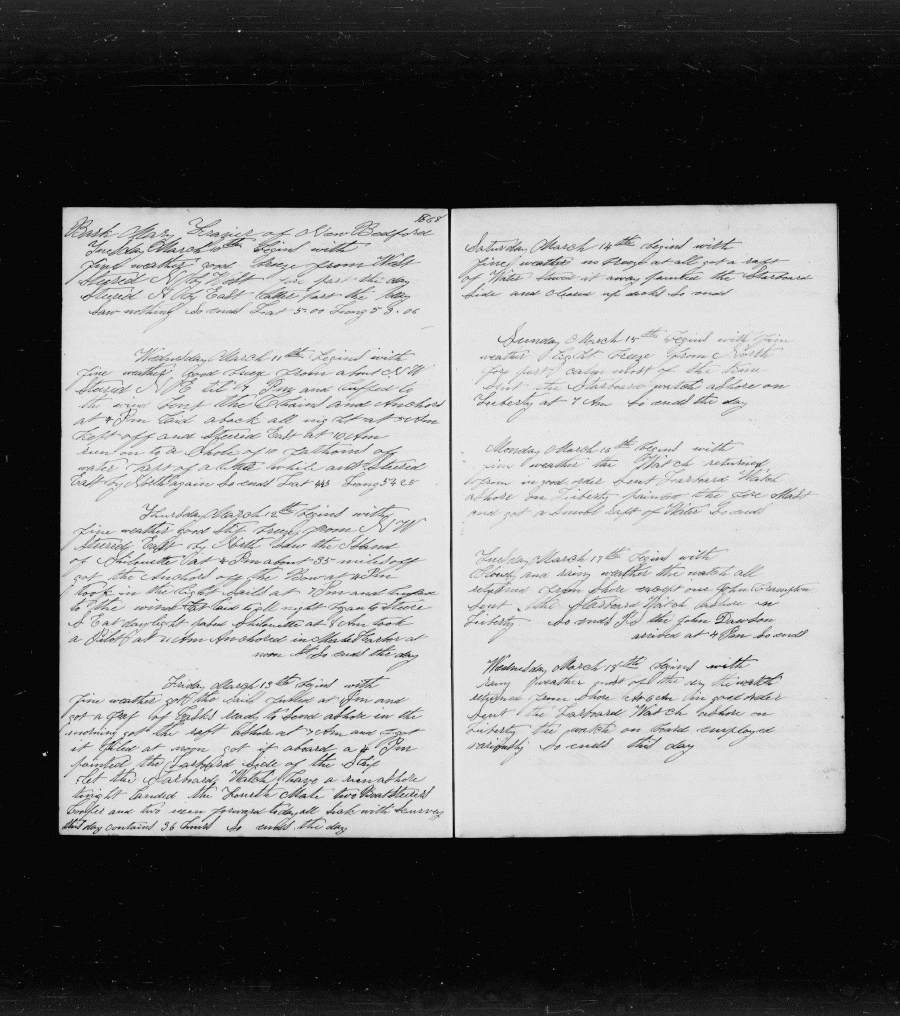 1868
Bark Mary Frazier of New Bedford
Tuesday March 10th begins with
fine weather good breeze from West
Steered N by West for part the day
Steered N by East latter part the day
saw nothing So ends Lat 5.00 Long 53.06
Wednesday March 11th begins with
fine weather Good breeze from about N W
Steered N E till 7 Pm and luffed to
the wind bent the Chains and Anchors
at 4 Pm Laid aback all night at 5 Am
kept off and Steered East at 10 Am
run on to a Shole of 10 fathoms of
water kept of a little while and Steered
East by North again So ends Lat Long 54 28
Thursday March 12th begins with
fine weather Good Stif breeze from N W
Steered East by North Saw the Island
of Silouette at 4 Pm about 35 miles off
got the Anchors off the Bow at 4 Pm
took in the light Sails at 7 Pm and luffed
to the wind laid to all night began to Steere
S E at daylight passed Silouette at 8 Am took
a Pilot at 11 Am Anchored in Harbor at
noon So ends the day
Friday March 13th begins with
fine weather got the Sails furled at Pm and
got a raft of Casks ready to Send ashore in the
morning got the raft ashore at 7 Am and got
it filed at noon got it aboard a 4 Pm
painted the Larbord Side of the Ship
let the Larboard Watch have a run ashore
tonight landed the Fourth Mate two Boat Steerers
Cooper and two men forward today all Sick with Scurvey
this day contains 36 hours So ends the day
Saturday March 14th begins with
fine weather no breeze at all got a raft
of Water stowed it away painted the Starboard
Side and cleaned up decks So ends
Sunday March 15th begins with fine
weather Light breeze from North
for part calm most of the time
Sent the Starboard watch ashore on
Liberty at 7 Am So ends the day
Monday March 16th begins with
fine weather the Watch returned
from in good order Sent Larboard Watch
ashore on Liberty painted the fore Mast
and got a Small raft of Water So ends
Tuesday March 17th begins with
Cloudy and rainy weather the watch all
returned from Shore except one John Frampton
Sent the Starboard Watch ashore on
Liberty So ends P.S the John Dawson
arrived at 4 Pm So ends
Wednesday March 18th begins with
rainy weather most of the day the watch
returned from Shore at 6 Am in good order
Sent the Larboard Watch ashore on
Liberty the watch on board employed
variously So ends this day